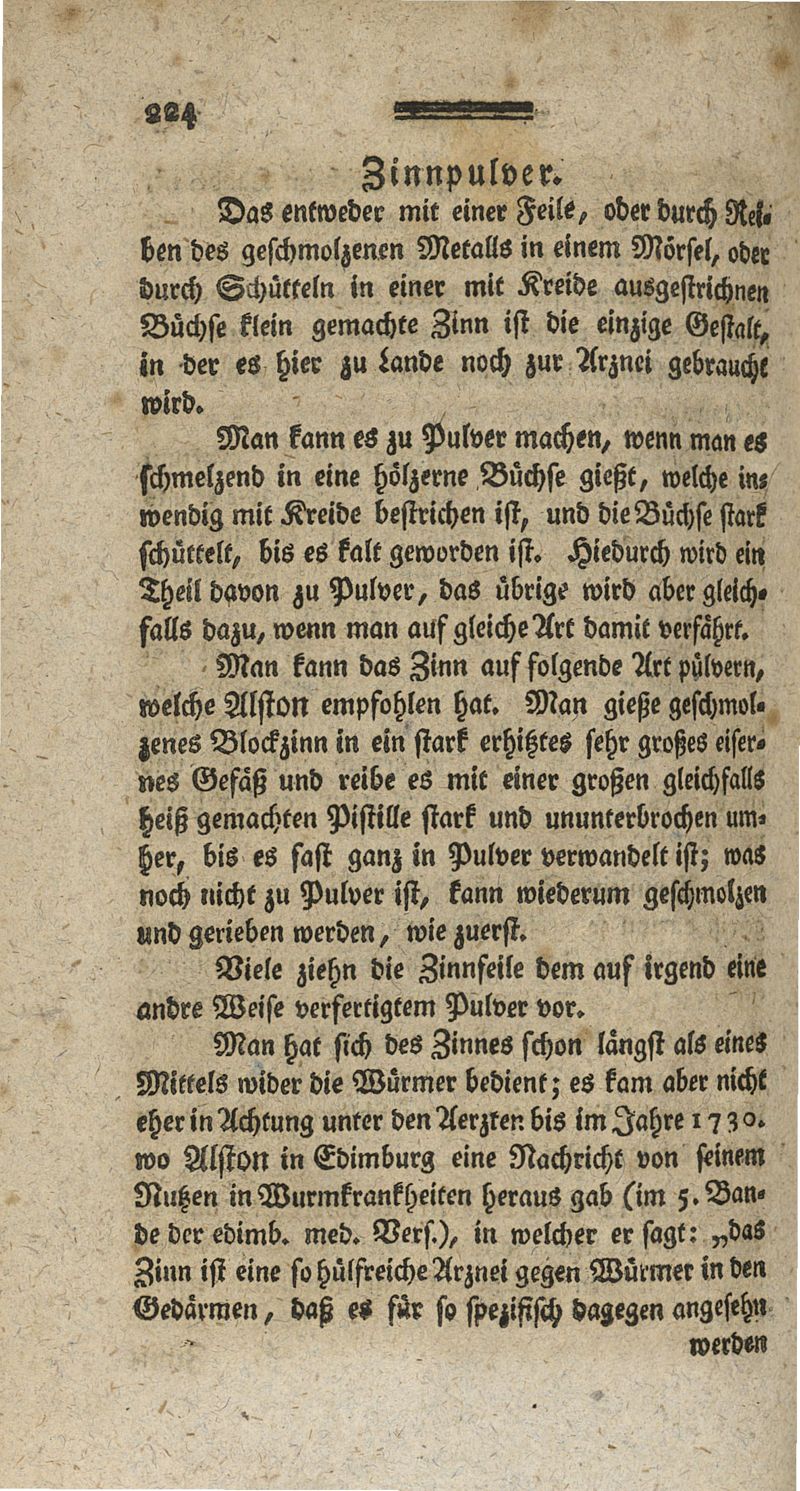 224
Zinnpulver.
Das entweder mit einer Feile, oder durch Rei-
ben des geschmolzenen Metalls in einem Mörsel, oder
durch Schütteln in einer mit Kreide ausgestrichnen
Büchse klein gemachte Zinn ist die einzige Gestalt,
in der es hier zu Lande noch zur Arznei gebraucht
wird.
Man kann es zu Pulver machen, wenn man es
schmelzend in eine hölzerne Büchse gießt, welche in-
wendig mit Kreide bestrichen ist, und die Büchse stark
schüttelt, bis es kalt geworden ist. Hiedurch wird ein
Theil davon zu Pulver, das übrige wird aber gleich-
falls dazu, wenn man auf gleiche Art damit verfährt.
Man kann das Zinn auf folgende Art pülvern,
welche Alston empfohlen hat. Man gieße geschmol-
zenes Blockzinn in ein stark erhitztes sehr großes eiser-
nes Gefäß und reibe es mit einer großen gleichfalls
heiß gemachten Pistille stark und ununterbrochen um-
her, bis es fast ganz in Pulver verwandelt ist; was
noch nicht zu Pulver ist, kann wiederum geschmolzen
und gerieben werden, wie zuerst.
Viele ziehn die Zinnfeile dem auf irgend eine
andre Weise verfertigtem Pulver vor.
Man hat sich des Zinnes schon längst als eines
Mittels wider die Würmer bedient; es kam aber nicht
eher in Achtung unter den Aerzten bis im Jahre 1730.
wo Alston in Edimburg eine Nachricht von seinem
Nutzen in Wurmkrankheiten heraus gab (im 5. Ban-
de der edimb. med. Vers.), in welcher er sagt: „das
Zinn ist eine so hülfreiche Arznei gegen Würmer in den
Gedärmen, daß es für so spezifisch dagegen angesehn
werden